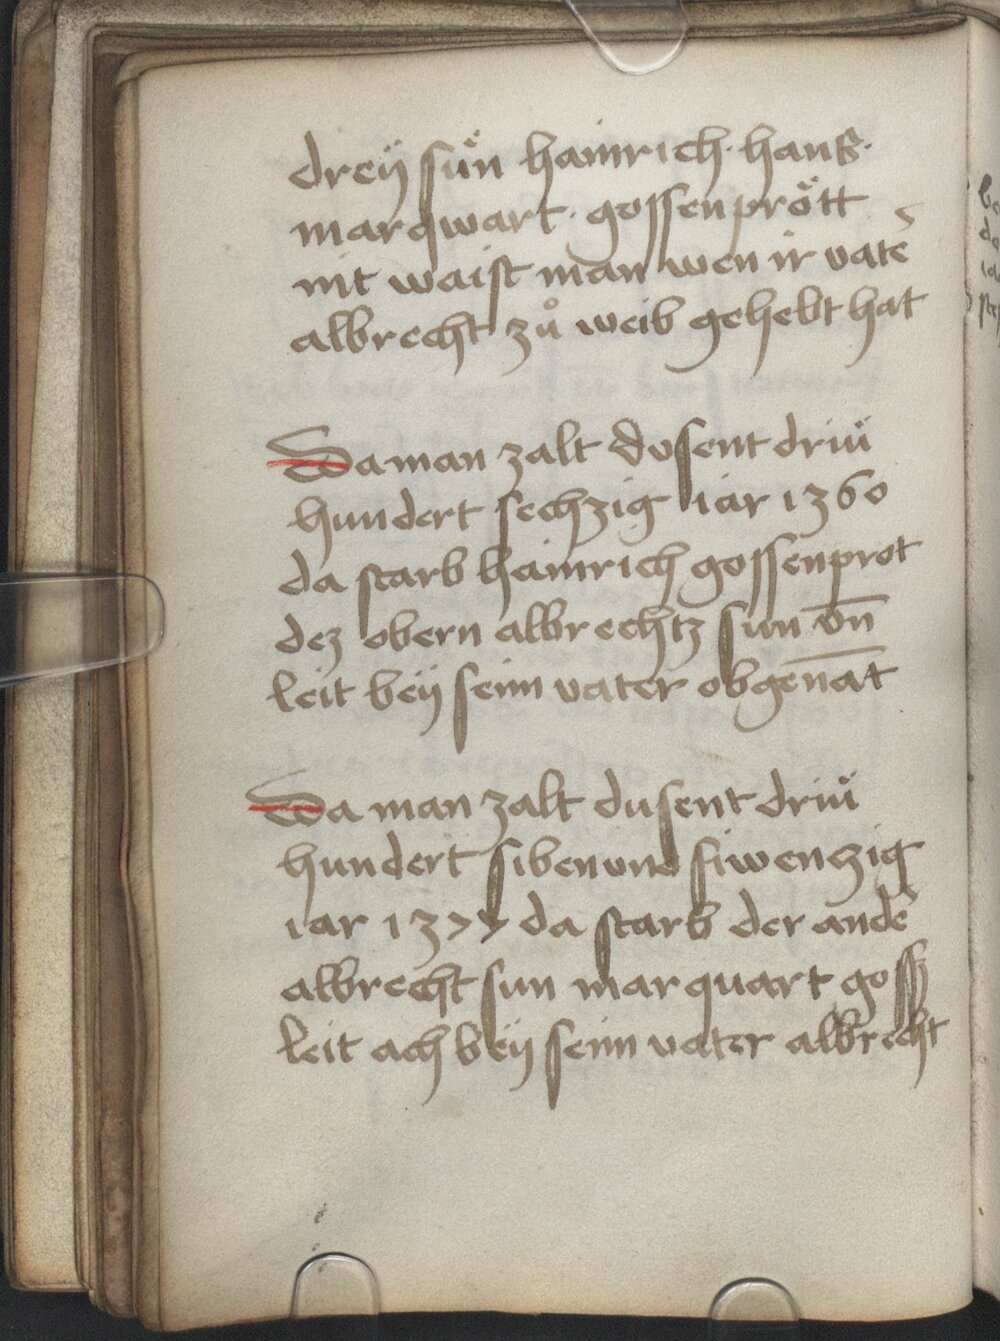 dreÿ sün hainrich · hans ·
marqwart · gossenprött
nit waist man wen ir vate͛
albrecht zů weib gehebt hat
Da man zalt dosent driü
hundert sechzig iar 1360
da starb hainrich gossenprot
dez obern albrechtz sun vn̄
leit beÿ seim vater obgenāt
Da man zalt dusent driü
hundert siben vnd siwenczig
iar 1377 da starb der ande͛
albrecht sun marquart
leit ach beÿ seim vater albrecht